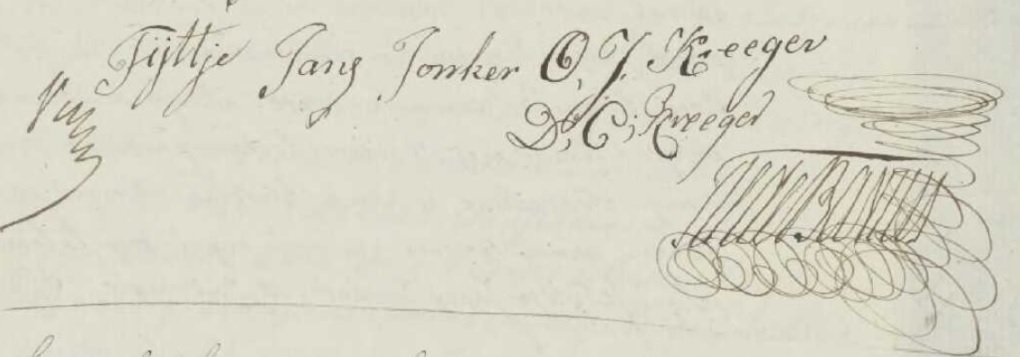 Tijttje Jans Jonker O, J. Kreeger
D, C; Kreeger